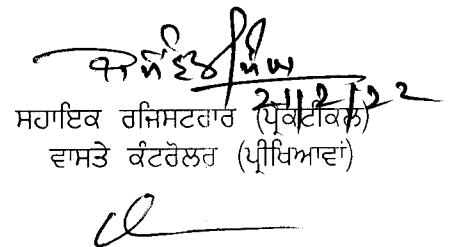 21/2/22
ਸਹਾਇਕ ਰਜਿਸਟਰਾਰ (ਪ੍ਰੈਕਟੀਕਲ)
ਵਾਸਤੇ ਕੰਟਰੋਲਰ (ਪ੍ਰੀਖਿਆਵਾਂ)